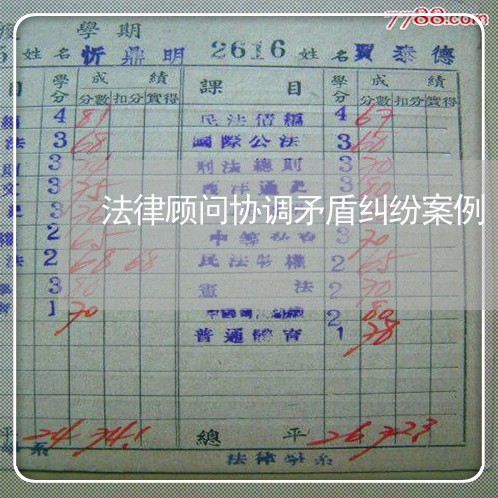 7788.com
學期
姓名 忻鼎明 2616 姓名 賈泰德
目 學分 成績 課目 學分 成績
分數 扣分 實得 分數 扣分 實得
4 81 民法債編 4 67
法 3 68 國際公法 3 60
3 刑法總則 3 70
文 3 75 西洋通史 3 80
法律顾问协调矛盾纠纷案例
2 65 3 70
法 2 68 68 民法物權 2 65
3 80 憲法 2 70
1 70 2 80
普通體育 1 78
平 24 74.1 總平 26 72.3
系 法律學系